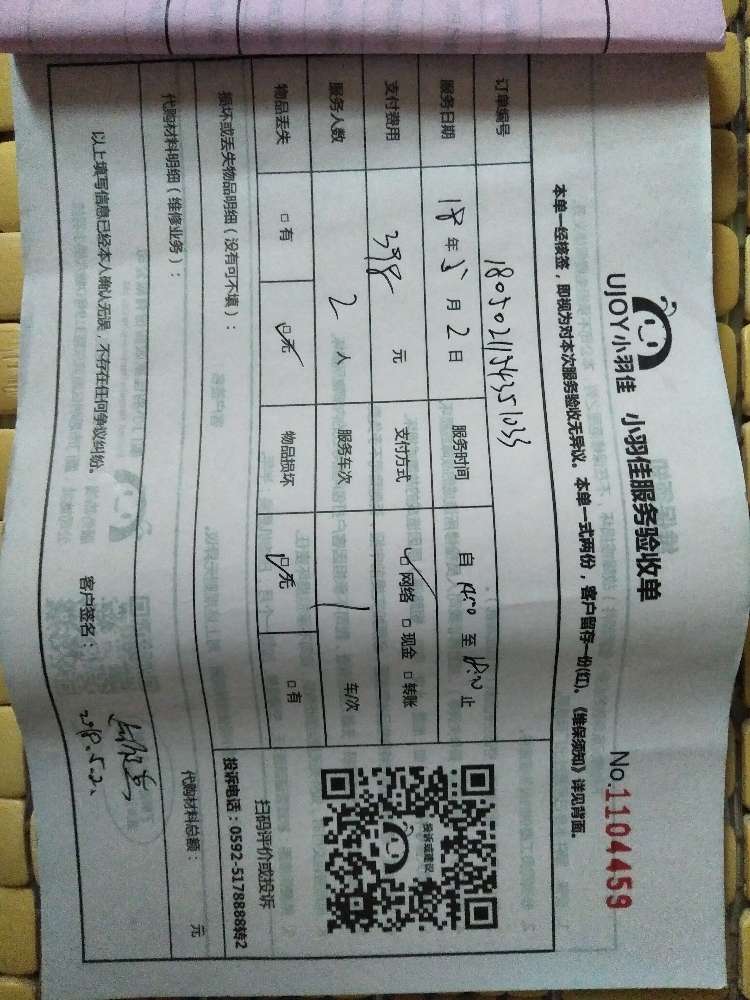 UJOY小羽佳 小羽佳服务验收单 No.1104459
本单一经核签，即视为对本次服务验收无异议。本单一式两份，客户留存一份(红)。《维保须知》详见背面。
订单编号 180502115435l033
服务日期 18年5月2日 服务时间 自 14:00 至 18:00 止
支付费用 398 元 支付方式 ☑网络 □现金 □转账
服务人数 2 人 服务车次 1 车/次
物品丢失 □有 ☑无 物品损坏 ☑无 □有
投诉或建议
扫码评价或投诉
投诉电话：0592-5178888转2
损坏或丢失物品明细（没有可不填）：
代购材料明细（维修业务）： 代购材料总额： 元
以上填写信息已经本人确认无误，不存在任何争议纠纷。 客户签名：
2018.5.2.